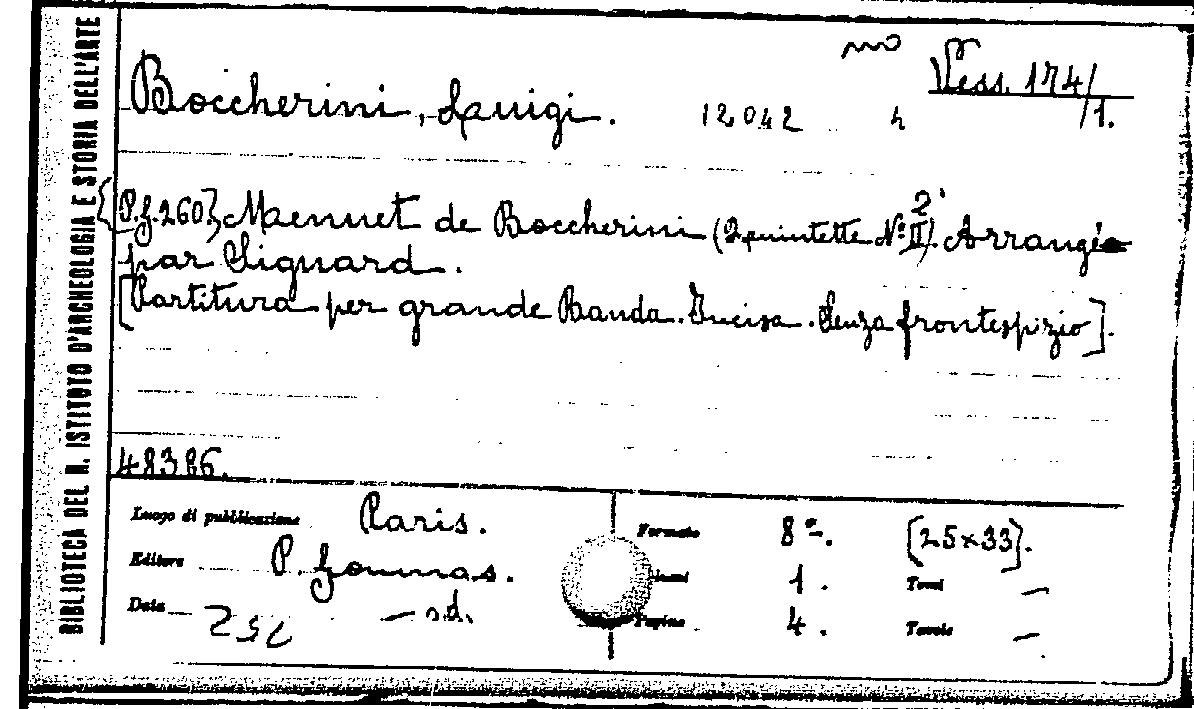 BIBLIOTECA DEL R. ISTITUTO D'ARCHEOLOGIA E STORIA DELL'ARTE
Vess. 174/1.
Boccherini, Luigi. 12042
[P.J.260] Maennet de Boccherini (Quintette Nº II) 2 Arrangé
par Signard.
[Partitura per grande Banda. Incisa. Senza frontespizio].
48386.
Luogo di pubblicazione Paris. Formato 8º. [25x33].
Editore P. Goumas. 1. Tomi —
Data — s.d. Pagine 4. Tavole —